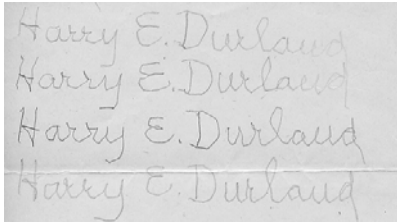 Harry E. Durland
Harry E. Durland
Harry E. Durland
Harry E. Durland